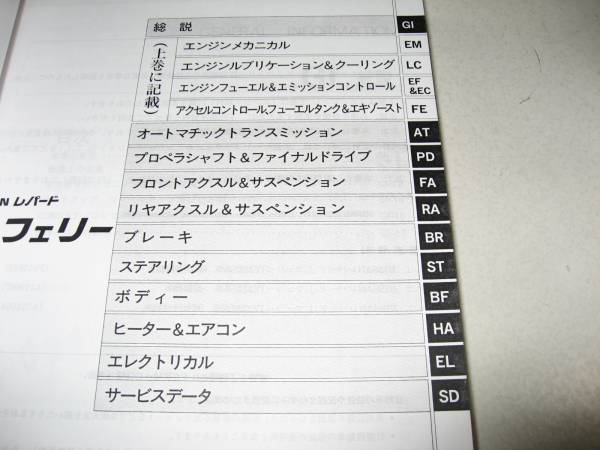 総説 GI
(上巻に記載)
エンジンメカニカル EM
エンジンルブリケーション&クーリング LC
エンジンフューエル&エミッションコントロール EF &EC
アクセルコントロール,フューエルタンク&エキゾースト FE
オートマチックトランスミッション AT
プロペラシャフト&ファイナルドライブ PD
フロントアクスル&サスペンション FA
リヤアクスル&サスペンション RA
ブレーキ BR
ステアリング ST
ボディー BF
ヒーター&エアコン HA
エレクトリカル EL
サービスデータ SD
N レパード
フェリー